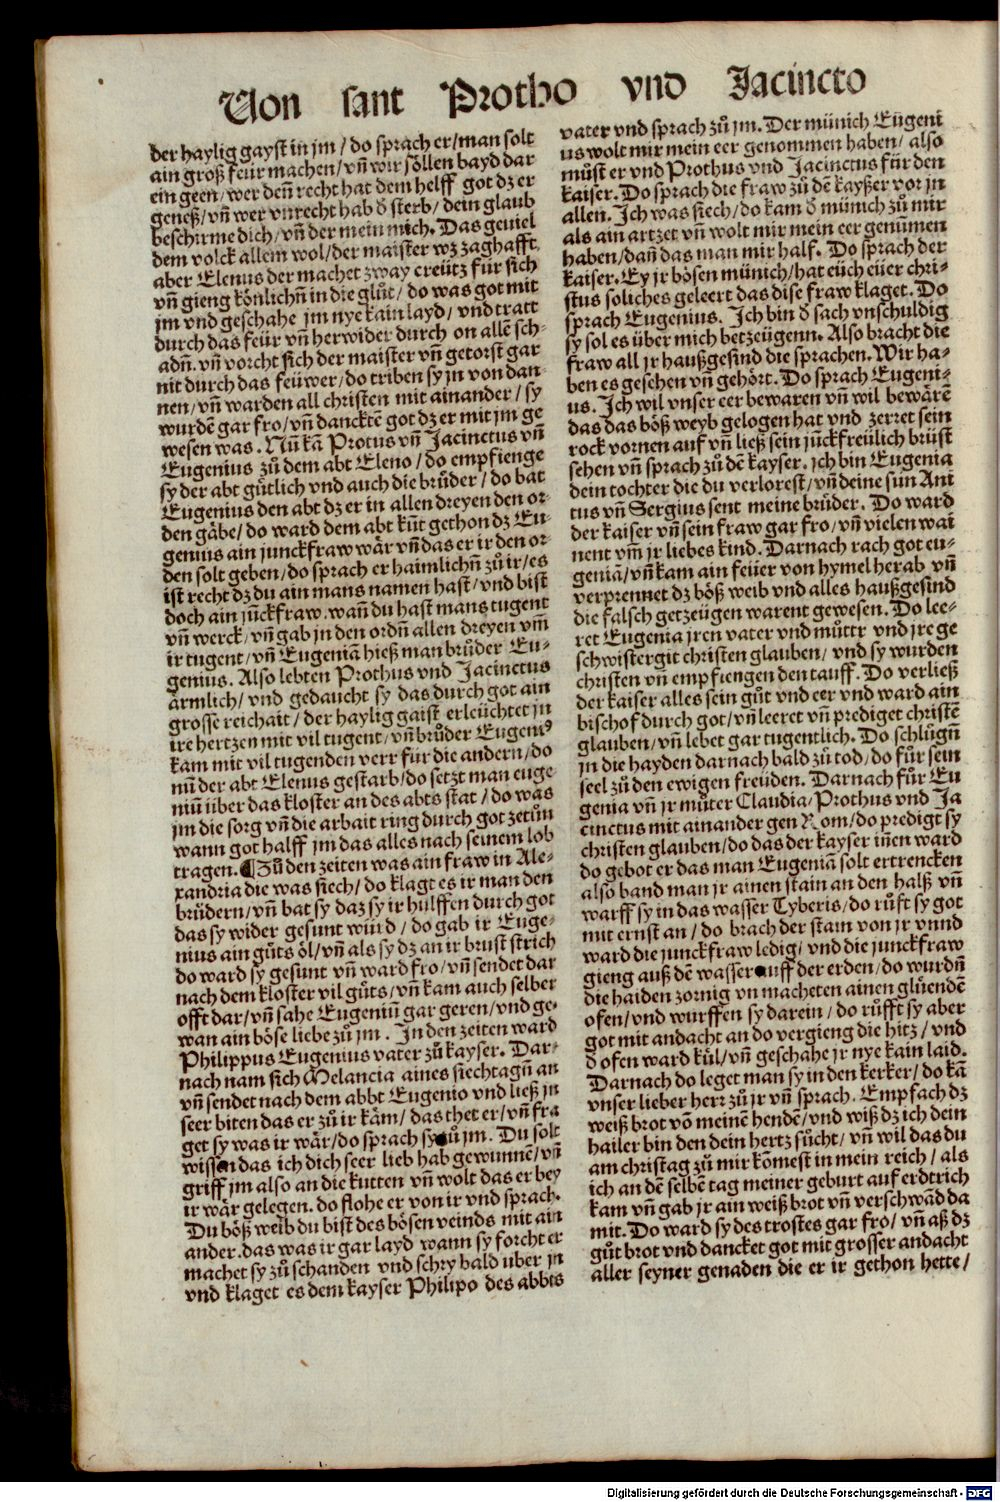 Von sant Protho vnd Jacincto
der haylig gayst in jm / do sprach er / man solt
ain groß feür machen / vñ wir söllen bayd dar
ein geen / wer deñ recht hat dem helff got dz er
geneß / vñ wer vnrecht hab d̕ sterb / dein glaub
beschirme dich / vñ der mein mich. Das geuiel
dem volck allem wol / der maister wz zaghafft,
aber Elenus der machet zway creütz für sich
vñ gieng könlichñ in die glůt / do was got mit
jm vnd geschahe jm nye kain layd / vnd tratt
durch das feür vñ herwider durch on allẽ sch-
adñ. vñ vorcht sich der maister vñ getorst gar
nit durch das feüwer / do triben sy jn von dan-
nen / vñ warden all christen mit ainander / sy
wurdẽ gar fro / vñ dancktẽ got dz er mit jm ge
wesen was. Nũ kã Protus vñ Jacinctus vñ
Eugenius zů dem abt Eleno / do empfienge
sy der abt gůtlich vnd auch die brůder / do bat
Eugenius den abt dz er in allen dreyen den or-
den gäbe / do ward dem abt kũt gethon dz Eu-
genius ain junckfraw wär vñ das er ir den or-
den solt geben / do sprach er haimlichñ zů ir / es
ist recht dz du ain mans namen hast / vnd bist
doch ain jũckfraw. wañ du hast mans tugent
vñ werck / vñ gab jn den ordñ allen dreyen vm̃
ir tugent / vñ Eugeniã hieß man brůder Eu-
genius. Also lebten Prothus vnd Jacinctus
ärmlich / vnd gedaucht sy das durch got ain
grosse reichait / der haylig gaist erleüchtet jn
ire hertzen mit vil tugent / vñ brůder Eugeniꝰ
kam mit vil tugenden verr für die andern / do
nũ der abt Elenus gestarb / do setzt man euge
niũ über das kloster an des abts stat / do was
jm die sorg vñ die arbait ring durch got zetůn
wann got halff jm das alles nach seinem lob
tragen. ¶ Zů den zeiten was ain fraw in Ale-
xandria die was siech / do klagt es ir man den
brüdern / vñ bat sy daz sy ir hülffen durch got
das sy wider gesunt würd / do gab ir Euge-
nius ain gůts öl / vñ als sy dz an ir brust strich
do ward sy gesunt vñ ward fro / vñ sendet dar
nach dem kloster vil gůts / vñ kam auch selber
offt dar / vñ sahe Eugeniũ gar geren / vnd ge-
wan ain böse liebe zů jm. In den zeiten ward
Philippus Eugenius vater zů kayser. Dar-
nach nam sich Melancia aines siechtagñ an
vñ sendet nach dem abbt Eugenio vnd ließ jn
seer biten das er zů ir käm / das thet er / vñ fra
get sy was ir wär / do sprach sy zů jm. Du solt
wissen das ich dich seer lieb hab gewunnẽ / vñ
griff jm also an die kutten vñ wolt das er bey
ir wär gelegen. do flohe er von ir vnd sprach.
Du böß weib du bist des bösen veinds mit ain
ander. das was ir gar layd wann sy forcht er
machet sy zů schanden vnd schry bald über jn
vnd klaget es dem kayser Philipo des abbts
vater vnd sprach zů jm. Der münich Eugeni
us wolt mir mein eer genommen haben / also
můst er vnd Prothus vnd Jacinctus für den
kaiser. Do sprach die fraw zů dẽ kayßer vor jn
allen. Ich was siech / do kam d̕ münich zů mir
als ain artzet vñ wolt mir mein eer genũmen
haben / dañ das man mir half. Do sprach der
kaiser. Ey jr bösen münich / hat eüch eüer chri-
stus soliches geleert das dise fraw klaget. Do
sprach Eugenius. Ich bin d̕ sach vnschuldig
sy sol es über mich betzeügenn. Also bracht die
fraw all jr haußgesind die sprachen. Wir ha-
ben es gesehen vñ gehört. Do sprach Eugeni-
us. Ich wil vnser eer bewaren vñ wil bewärẽ
das das böß weyb gelogen hat vnd zerret sein
rock vornen auf vñ ließ sein jũckfreülich brüst
sehen vñ sprach zů dẽ kayser. ich bin Eugenia
dein tochter die du verlorest / vñ deine sun Ant
tus vñ Sergius sent meine brüder. Do ward
der kaiser vñ sein fraw gar fro / vñ vielen wai
nent vm̃ jr liebes kind. Darnach rach got eu-
geniã / vñ kam ain feüer von hymel herab vñ
verprennet dz böß weib vnd alles haußgesind
die falsch getzeügen warent gewesen. Do lee-
ret Eugenia jren vater vnd můttr vnd jre ge
schwistergit christen glauben / vnd sy wurden
christen vñ empfiengen den tauff. Do verließ
der kaiser alles sein gůt vnd eer vnd ward ain
bischof durch got / vñ leeret vñ prediget christẽ
glauben / vñ lebet gar tugentlich. Do schlůgñ
jn die hayden darnach bald zů tod / do für sein
seel zů den ewigen freüden. Darnach für Eu
genia vñ jr můter Claudia / Prothus vnd Ja
cinctus mit ainander gen Rom / do predigt sy
christen glauben / do das der kayser iñen ward
do gebot er das man Eugeniã solt ertrencken
also band man jr ainen stain an den halß vñ
warff sy in das wasser Tyberis / do růft sy got
mit ernst an / do brach der stain von jr vnnd
ward die junckfraw ledig / vnd die junckfraw
gieng auß dẽ wasser auff der erden / do wurdñ
die haiden zornig vn macheten ainen glůendẽ
ofen / vnd wurffen sy darein / do růfft sy aber
got mit andacht an do vergieng die hitz / vnd
d̕ ofen ward kůl / vñ geschahe jr nye kain laid.
Darnach do leget man sy in den kerker / do kã
vnser lieber herr zů jr vñ sprach. Empfach dz
weiß brot võ meinẽ hendẽ / vnd wiß dz ich dein
hailer bin den dein hertz sůcht / vñ wil das du
am christag zů mir kõmest in mein reich / als
ich an dẽ selbẽ tag meiner geburt auf erdtrich
kam vñ gab jr ain weiß brot vñ verschwãd da
mit. Do ward sy des trostes gar fro / vñ aß dz
gůt brot vnd dancket got mit grosser andacht
aller seyner genaden die er ir gethon hette /
Digitalisierung gefördert durch die Deutsche Forschungsgemeinschaft - DFG